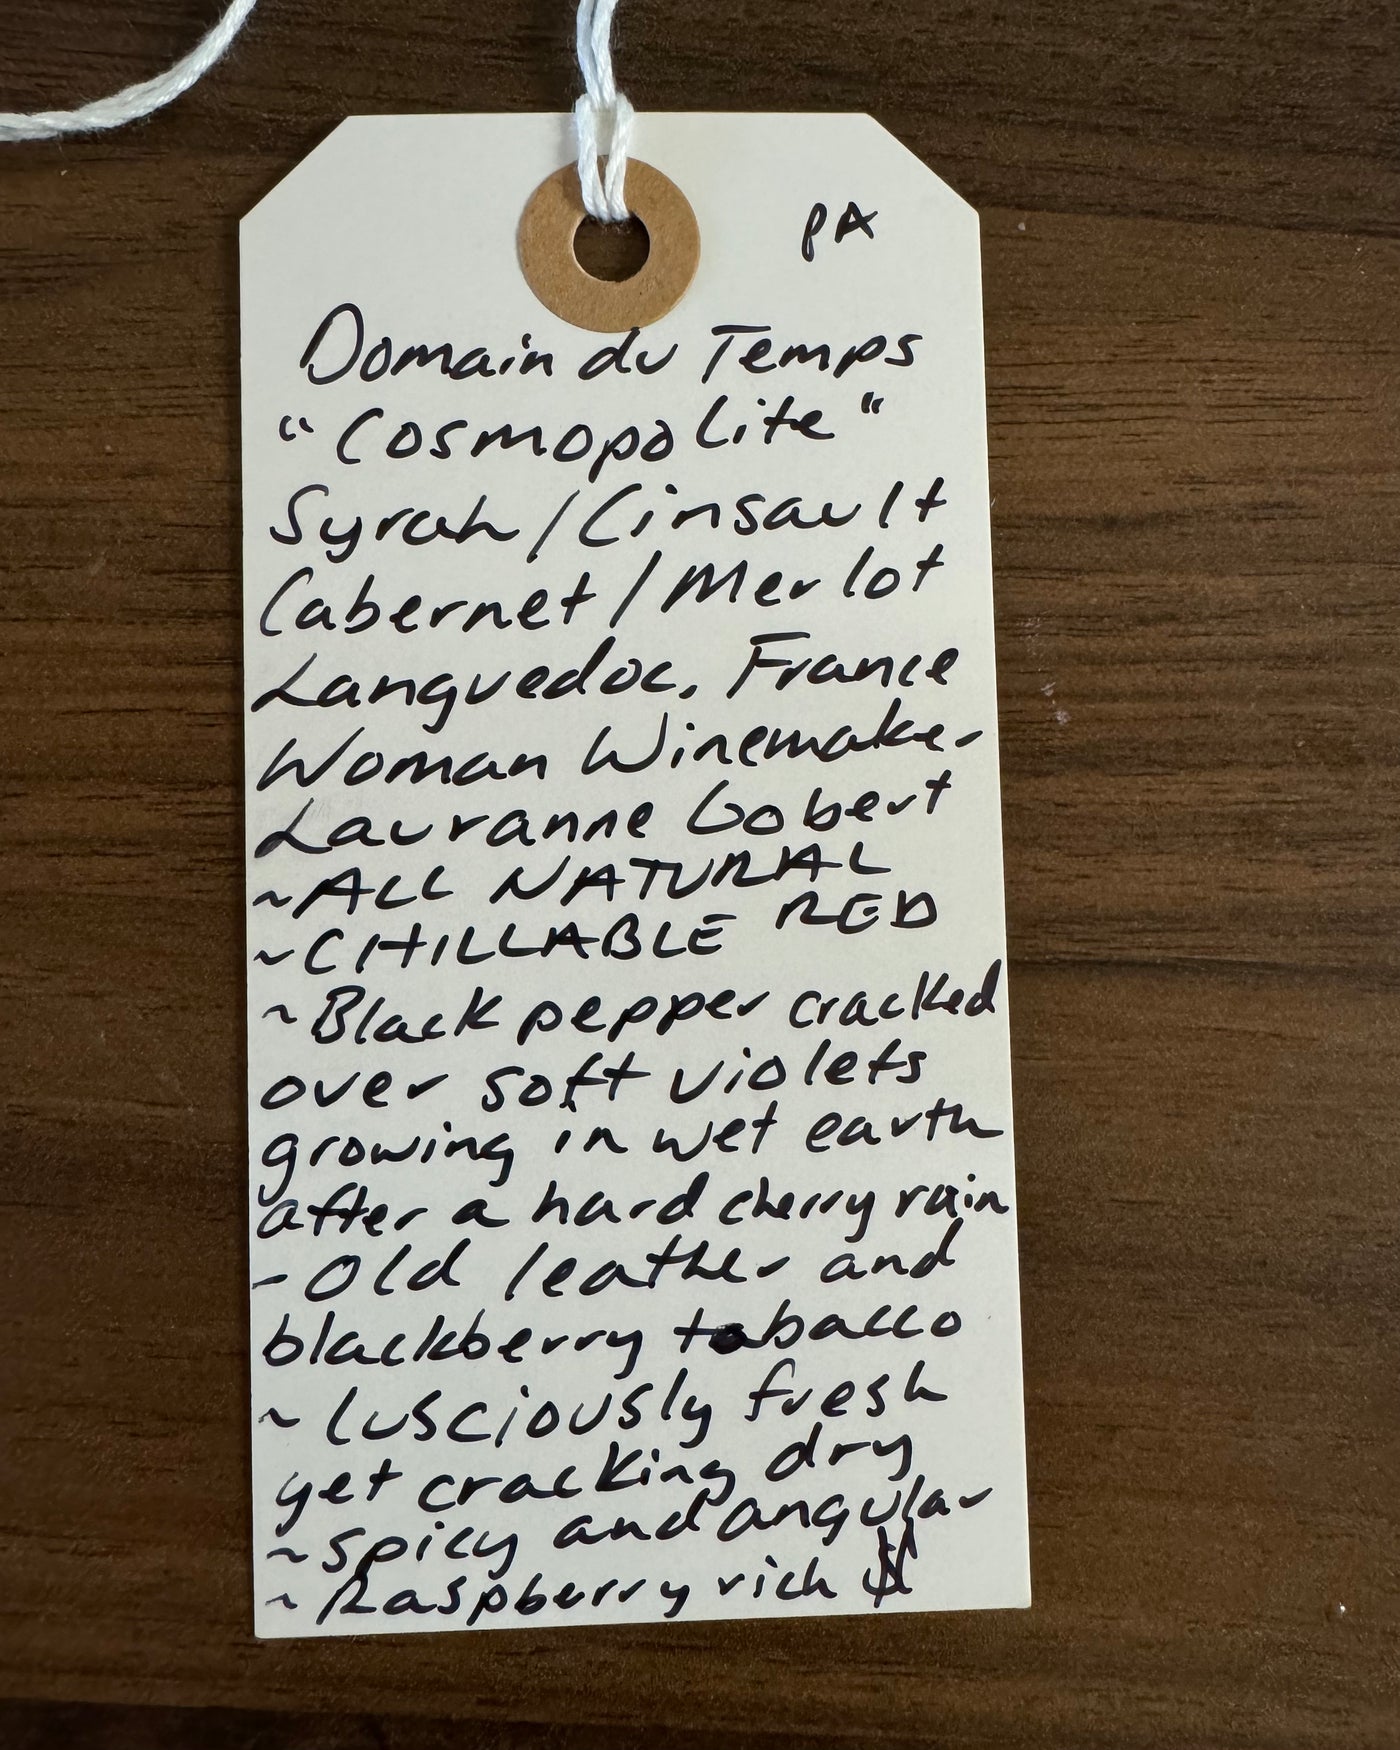 PA
Domain du Temps
"Cosmopolite"
Syrah/Cinsault
Cabernet/Merlot
Languedoc, France
Woman Winemaker
Lauranne Gobert
~ALL NATURAL
~CHILLABLE RED
~Black pepper cracked
over soft violets
growing in wet earth
after a hard cherry rain
-Old leather and
blackberry tobacco
~lusciously fresh
yet cracking dry
~spicy and angular
~Raspberry rich